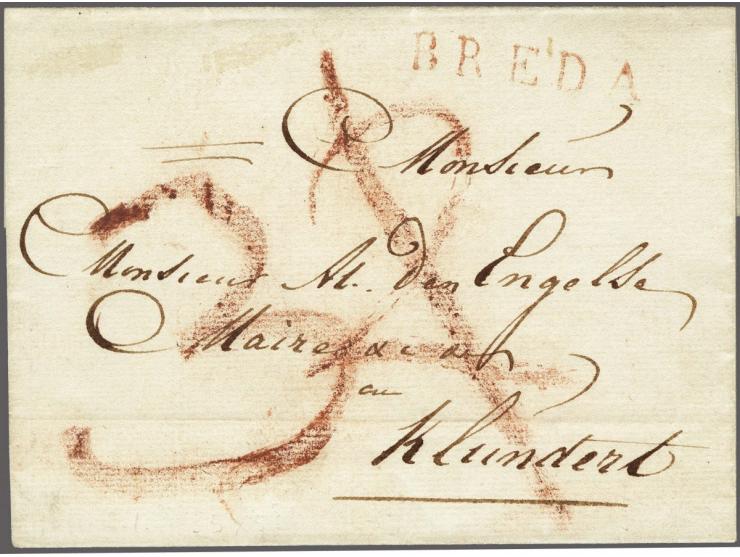 BREDA
Monsieur
Monsieur M. Den Engelse
Maire &c &c
au
Klundert
3